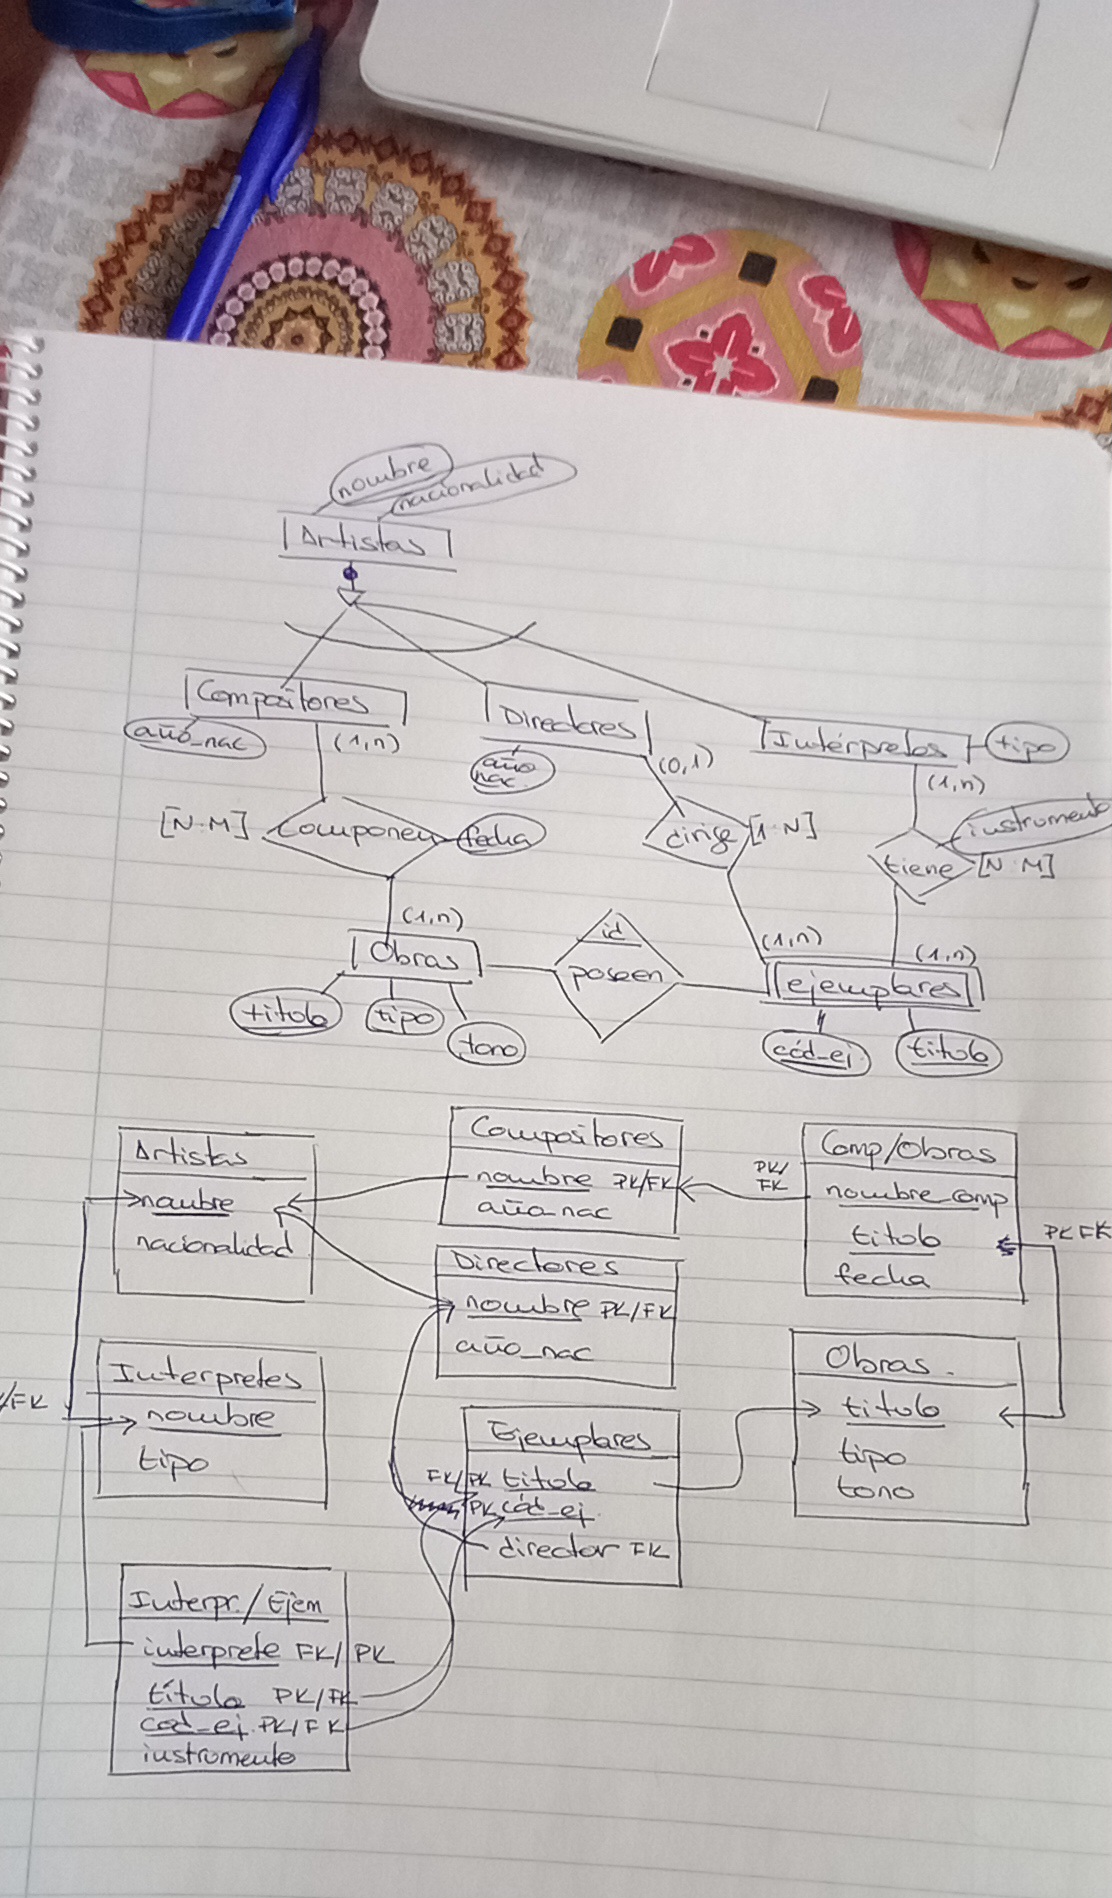 nombre
nacionalidad
Artistas
Compositores
año_nac
(1,n)
Directores
año
nac.
(0,1)
Intérpretes
tipo
(1,n)
[N:M] Componen fecha
dirige [1:N]
instrumento
tiene [N:M]
(1,n)
Obras
id
poseen
(1,n)
(1,n)
ejemplares
titulo
tipo
tono
cód_ej
titulo
Artistas
nombre
nacionalidad
Compositores
nombre PK/FK
año_nac
Comp/Obras
PK/
FK
nombre_comp
titulo
PK FK
fecha
Directores
nombre PK/FK
año_nac
Interpretes
/FK
nombre
tipo
Obras.
titulo
tipo
tono
Ejemplares
FK/PK titulo
PK cód_ej.
director FK
Interpr./Ejem
interprete FK/PK
título PK/FK
cod_ej. PK/FK
instrumento